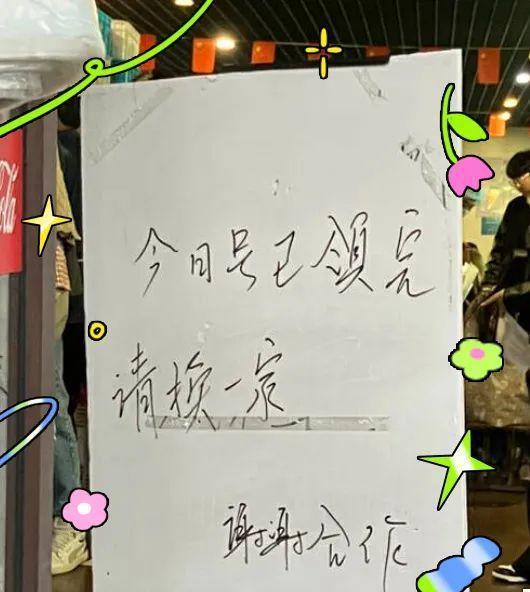 今日号已领完
请换一家
谢谢合作